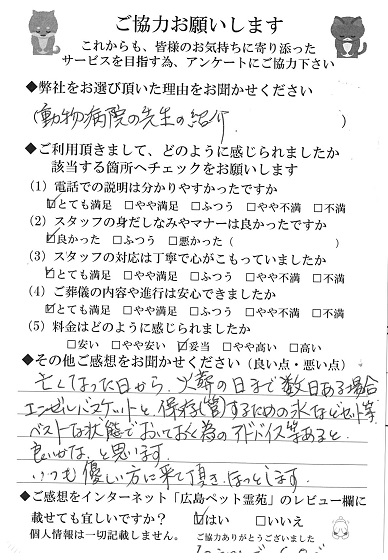 ご協力お願いします
これからも、皆様のお気持ちに寄り添った
サービスを目指す為、アンケートにご協力下さい
◆弊社をお選び頂いた理由をお聞かせください
(動物病院の先生の紹介 )
◆ご利用頂きまして、どのように感じられましたか
該当する箇所へチェックをお願いします
(1) 電話での説明は分かりやすかったですか
☑とても満足 □やや満足 □ふつう □やや不満 □不満
(2) スタッフの身だしなみやマナーは良かったですか
☑良かった □ふつう □悪かった ( )
(3) スタッフの対応は丁寧で心がこもっていましたか
☑とても満足 □やや満足 □ふつう □やや不満 □不満
(4) ご葬儀の内容や進行は安心できましたか
☑とても満足 □やや満足 □ふつう □やや不満 □不満
(5) 料金はどのように感じられましたか
□安い □やや安い ☑妥当 □やや高い □高い
◆その他ご感想をお聞かせください (良い点・悪い点)
亡くなった日から、火葬の日まで数日ある場合
エンゼルバスケットと、保存(管)するための氷などセット等
ベストな状態でおいておく為のアドバイス等あると
良いかな、と思います。
いつも優しい方に来て頂き、ほっとします。
◆ご感想をインターネット「広島ペット霊苑」のレビュー欄に
載せても宜しいですか? ☑はい □いいえ
個人情報は一切記載しません。 ご協力ありがとうございました